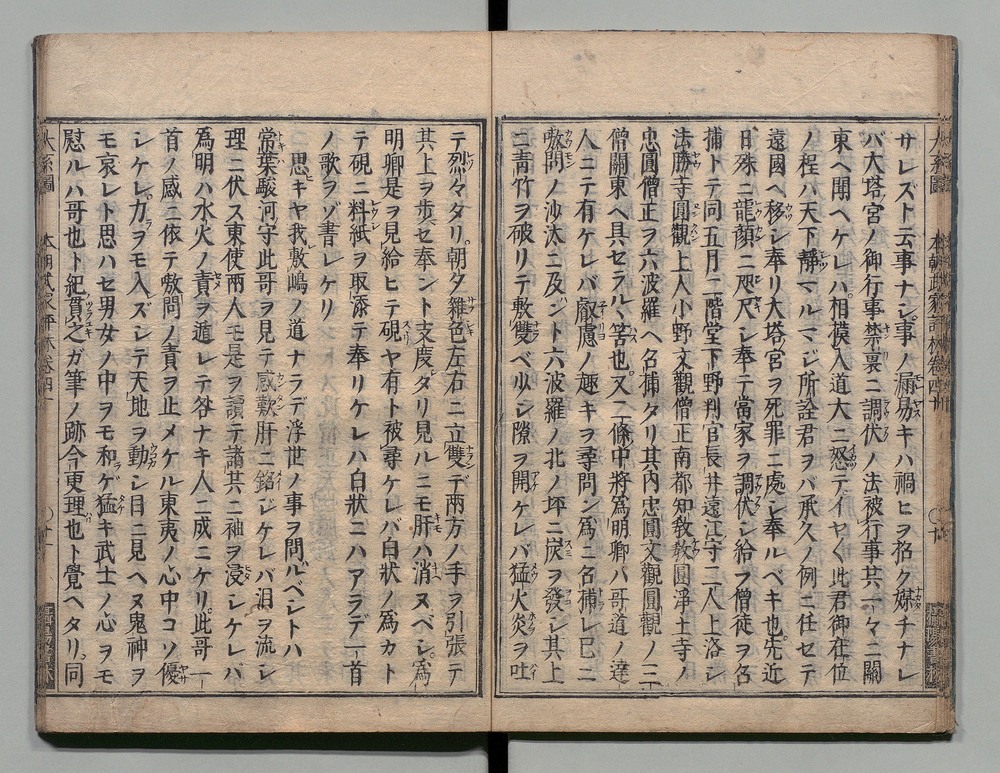 サレズト云事ナシ事ノ漏易キハ禍ヒヲ招ク媒チナレ
バ大塔宮ノ御行事禁裏ニ調伏ノ法被行事共一々ニ關
東ヘ聞ヘケレハ相模入道大ニ怒テイヤ〱此君御在位
ノ程ハ天下靜マルマジ所詮君ヲバ承久ノ例ニ任セテ
遠國ヘ移シ奉リ大塔宮ヲ死罪ニ處シ奉ルベキ也先近
日殊ニ龍顔ニ咫尺シ奉テ當家ヲ調伏シ給フ僧徒ヲ召
捕トテ同五月二階堂下野判官長井遠江守二人上洛シ
法勝寺圓觀上人小野文觀僧正南都知敎敎圓淨土寺ノ
忠圓僧正ヲ六波羅ヘ召捕タリ其内忠圓文觀圓觀ノ三
僧關東ヘ具セラルヽ筈也又二條中將爲明卿ハ哥道ノ達
人ニテ有ケレバ叡慮ノ趣キヲ尋問シ爲ニ召捕レ已ニ
嗷問ノ沙汰ニ及ント六波羅ノ北ノ坪ニ炭ヲ發シ其上
ニ靑竹ヲ破リテ敷雙ベ少シ隙ヲ開ケレバ猛火炎ヲ吐
大系圖
本朝武家評林卷四十
テ烈々タリ朝夕雜色左右ニ立雙デ兩方ノ手ヲ引張テ
其上ヲ歩セ奉ント支度ダリ見ルニモ肝ハ消ヌベシ爲
明卿是ヲ見給ヒテ硯ヤ有ト被尋ケレバ白狀ノ爲カト
テ硯ニ料紙ヲ取添テ奉リケレハ白狀ニハアラデ一首
ノ歌ヲゾ書レケリ
思キヤ我敷嶋ノ道ナラデ浮世ノ事ヲ問ルベシトハ
常葉駿河守此哥ヲ見テ感歎肝ニ銘シケレバ泪ヲ流シ
理ニ伏ス東使兩人モ是ヲ讀テ諸共ニ袖ヲ浸シケレバ
爲明ハ水火ノ責ヲ遁レテ咎ナキ人ニ成ニケリ此哥一
首ノ感ニ依テ嗷問ノ責ヲ止メケル東夷ノ心中コソ優
シケレ力ヲモ入ズシテ天地ヲ動シ目ニ見ヘヌ鬼神ヲ
モ哀レト思ハセ男女ノ中ヲモ和ゲ猛キ武士ノ心ヲモ
慰ルハ哥也ト紀貫之ガ筆ノ跡今更理也ト覺ヘタリ同
大系圖
本朝武家評林卷四十